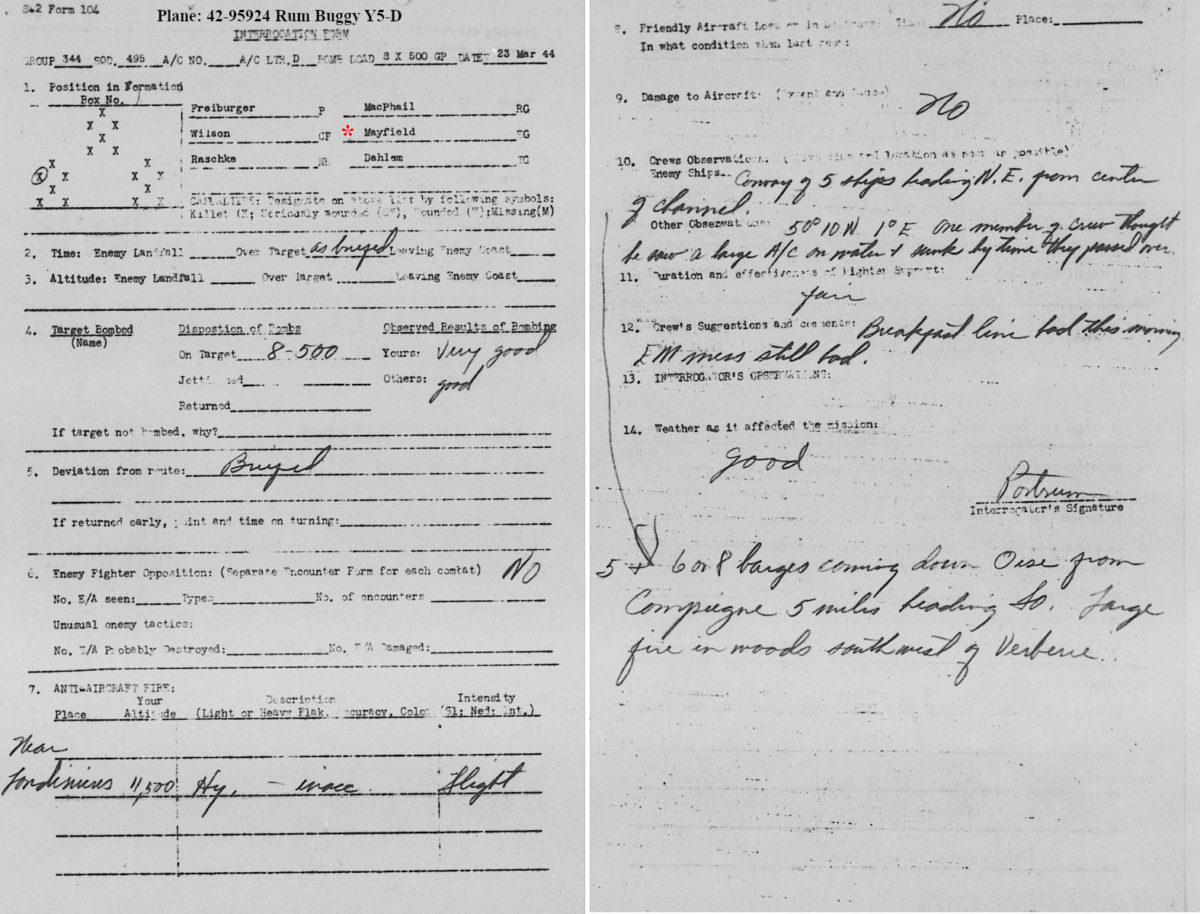 S-2 Form 104
Plane: 42-95924 Rum Buggy Y5-D
INTERROGATION FORM
GROUP 344 SQD. 495 A/C NO.____ A/C LTR. D BOMB LOAD 8 X 500 GP DATE: 23 Mar 44
1. Position in Formation
Box No. 1
Freiburger P MacPhail RG
Wilson CP * Mayfield EG
Raschke Dahlem TG
X
X X
X
X X
X X
X X X
X X X X
X X
X X X X
CASUALTIES: Designate on above list by following symbols:
Killed (K; Seriously wounded (SW), Wounded (W);Missing(M)
2. Time: Enemy Landfall ____ Over Target as briefed Leaving Enemy Coast____
3. Altitude: Enemy Landfall ____ Over Target ____ Leaving Enemy Coast____
4. Target Bombed Disposition of Bombs Observed Results of Bombing
(Name)
On Target 8-500 Yours: Very good
Jettisoned____ Others: good
Returned____
If target not bombed, why?____
5. Deviation from route: Briefed
If returned early, point and time on turning:____
6. Enemy Fighter Opposition: (Separate Encounter Form for each combat) NO
No. E/A seen:____ Types____ No. of encounters ____
Unusual enemy tactics:
No. E/A Probably Destroyed:____ No. E/A Damaged:____
7. ANTI-AIRCRAFT FIRE:
Your Description Intensity
Place Altitude (Light or Heavy Flak, Accuracy, Color (Sl; Med; Int.)
Near
11,500 Hy. - inacc. Slight
8. Friendly Aircraft Lost or in Distress: No Place:____
In what condition when last seen:
9. Damage to Aircraft: (Extent and Cause)
No
10. Crews Observations. (Give time and location as near as possible)
Enemy Ships.. Convoy of 5 ships heading N.E. from center
of channel.
Other Observations: 50° 10 N 1° E One member of crew thought
he saw a large A/C on water & sunk by time they passed over.
11. Duration and effectiveness of Fighter Support:
fair
12. Crew's Suggestions and comments: Breakfast line bad this morning
EM mess still bad.
13. INTERROGATOR'S OBSERVATIONS:
14. Weather as it affected the mission:
good
Interrogator's Signature
6 or 8 barges coming down Oise from
Compiegne 5 miles heading So. Large
fire in woods southwest of Verberie.